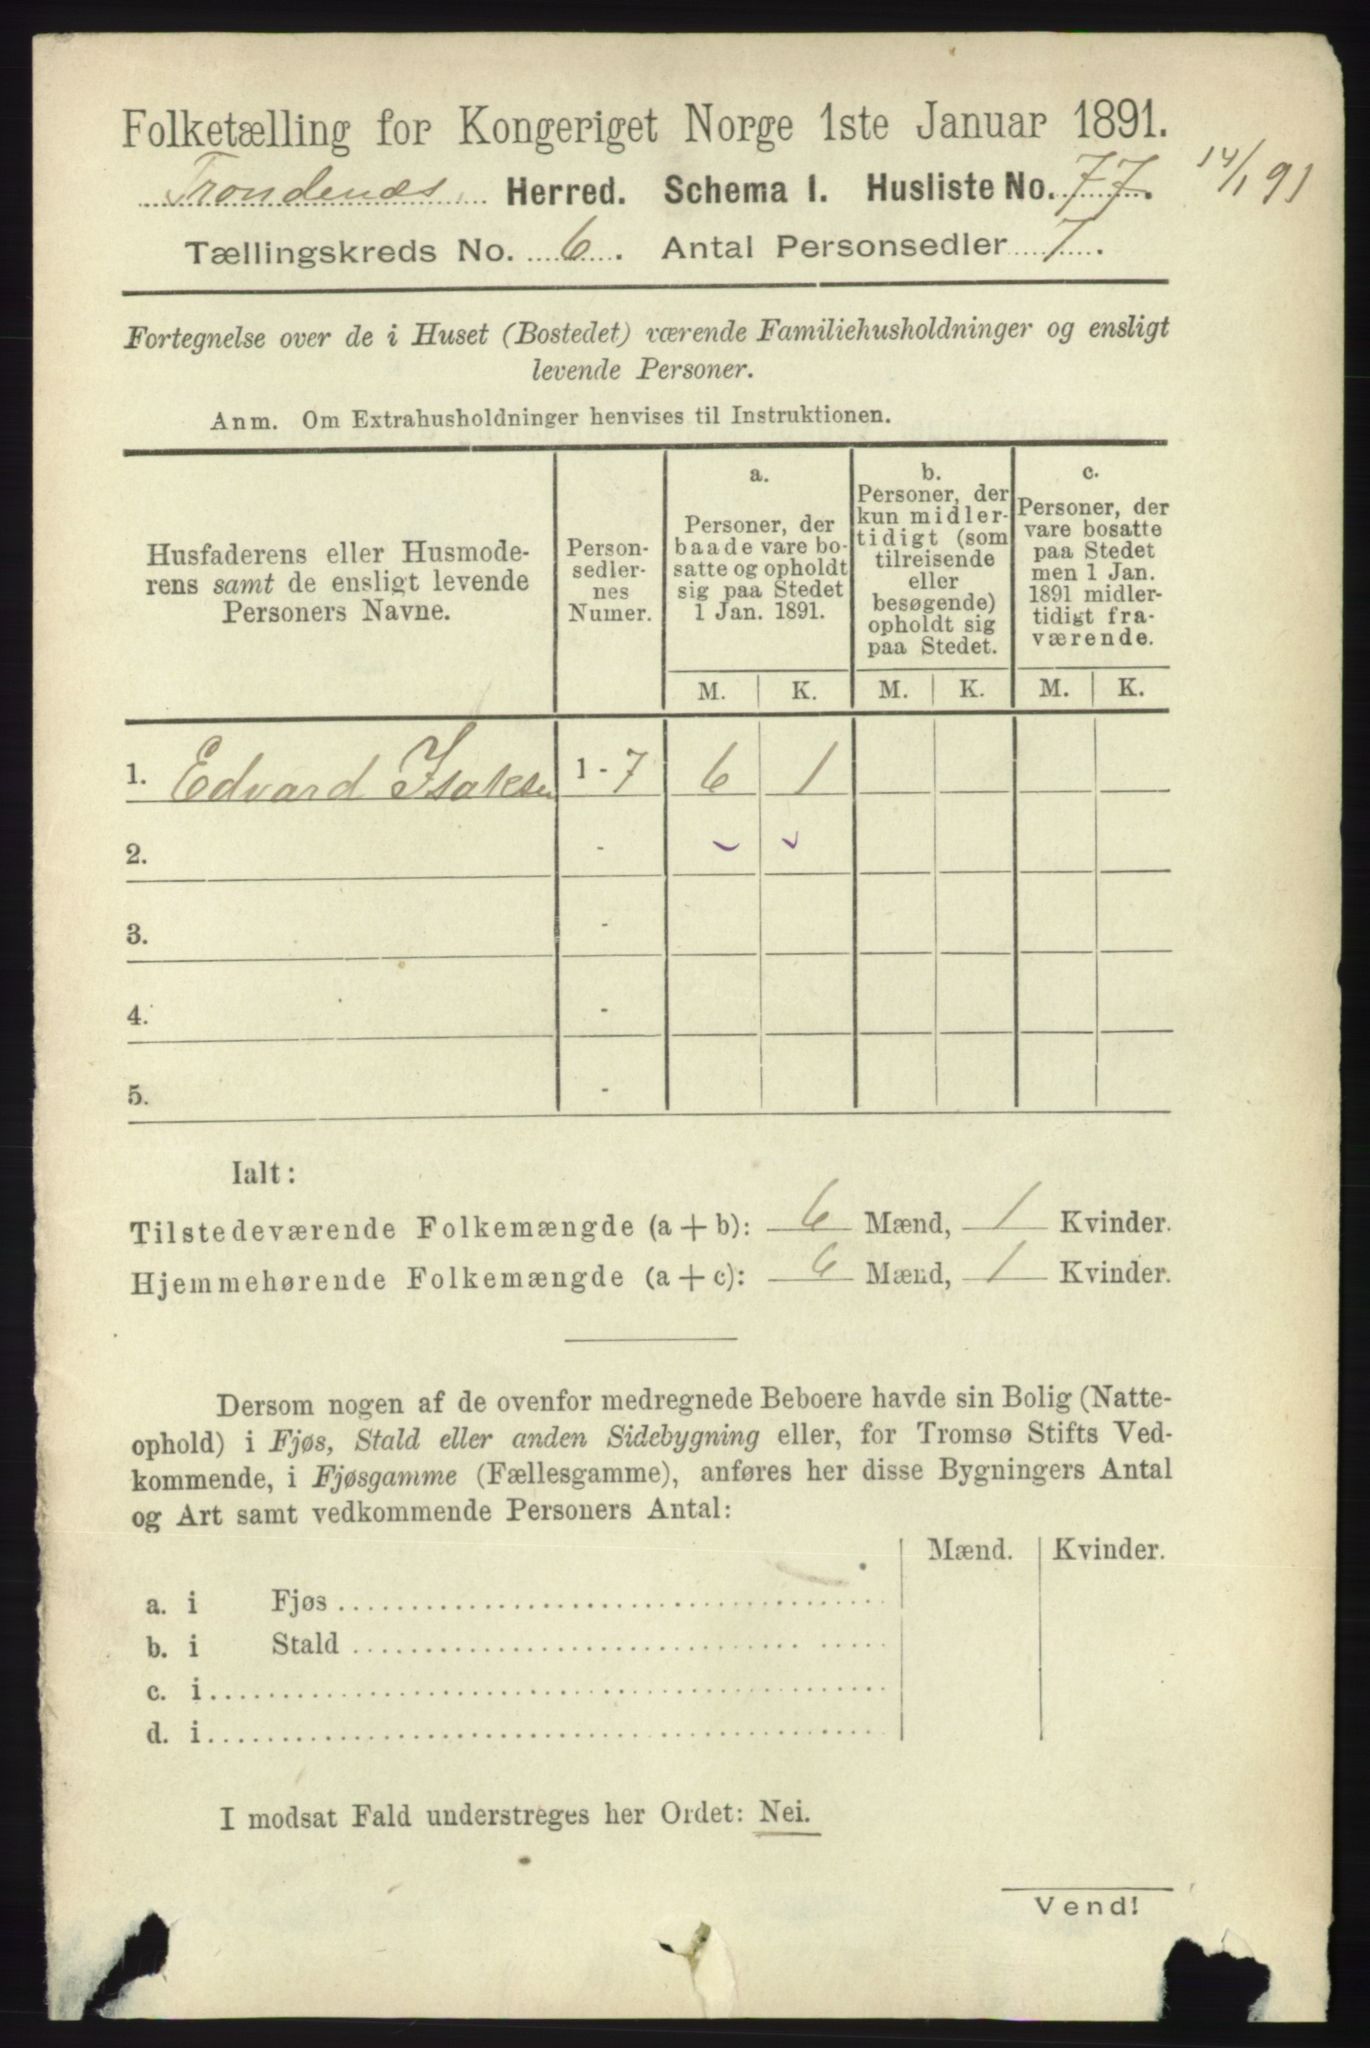 Folketælling for Kongeriget Norge 1ste Januar 1891.
Trondenæs Herred. Schema I. Husliste No. 77. 14/1 91
Tællingskreds No. 6. Antal Personsedler 7.
Fortegnelse over de i Huset (Bostedet) værende Familiehusholdninger og ensligt
levende Personer.
Anm. Om Extrahusholdninger henvises til Instruktionen.
Husfaderens eller Husmode-
rens samt de ensligt levende
Personers Navne.
Person-
sedler-
nes
Numer.
a.
Personer, der
baade vare bo-
satte og opholdt
sig paa Stedet
1 Jan. 1891.
b.
Personer, der
kun midler-
tidigt (som
tilreisende
eller
besøgende)
opholdt sig
paa Stedet.
c.
Personer, der
vare bosatte
paa Stedet
men 1 Jan.
1891 midler-
tidigt fra-
værende.
M. K. M. K. M. K.
1. Edvard Isaksen 1 - 7 6 1
2. -
3. -
4. -
5. -
Ialt:
Tilstedeværende Folkemængde (a + b): 6 Mænd, 1 Kvinder.
Hjemmehørende Folkemængde (a + c): 6 Mænd, 1 Kvinder.
Dersom nogen af de ovenfor medregnede Beboere havde sin Bolig (Natte-
ophold) i Fjøs, Stald eller anden Sidebygning eller, for Tromsø Stifts Ved-
kommende, i Fjøsgamme (Fællesgamme), anføres her disse Bygningers Antal
og Art samt vedkommende Personers Antal:
Mænd. Kvinder.
a. i Fjøs
b. i Stald
c. i
d. i
I modsat Fald understreges her Ordet: Nei.
Vend!